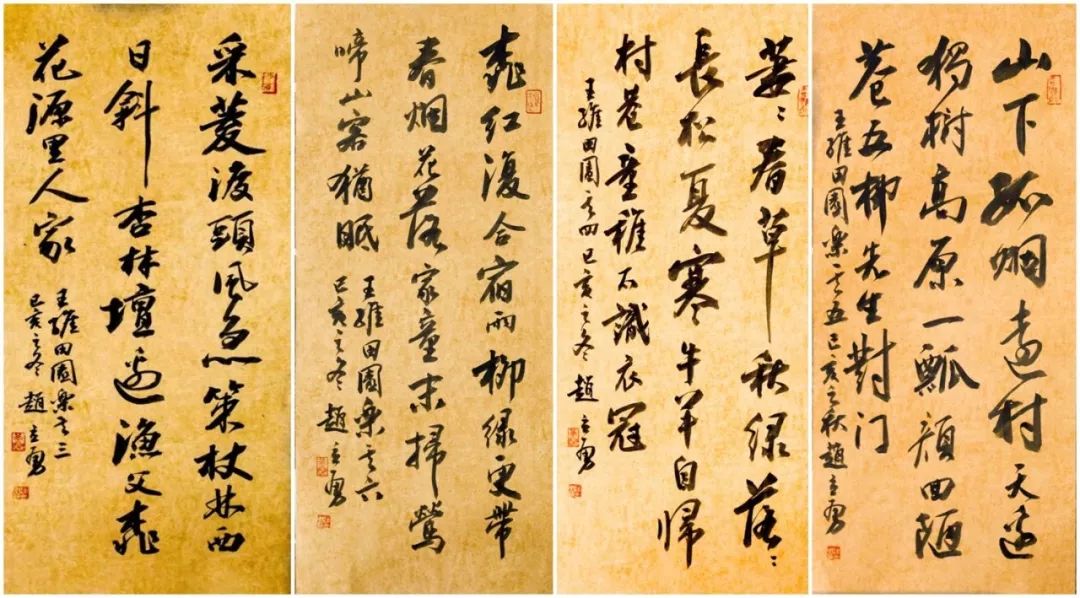 山下孤烟遠村天邊
獨樹高原一瓢顔回陋
巷五柳先生對门
王維田園樂其五己亥之秋趙立勇
萋〻春草秋緑落〻
長松夏寒牛羊自歸
村巷童稚不識衣冠
王維田園其四己亥之冬 趙立勇
桃红復合宿雨柳緑更帶
春烟花落家童未掃鶯
啼山客猶眠
王維田園樂其六
己亥之冬 趙立勇
采菱渡頭風急策杖林西
日斜杏林壇邊漁父桃
花源里人家
王維田園樂其三
己亥之冬 趙立勇